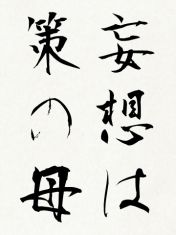 妄想は
策の母